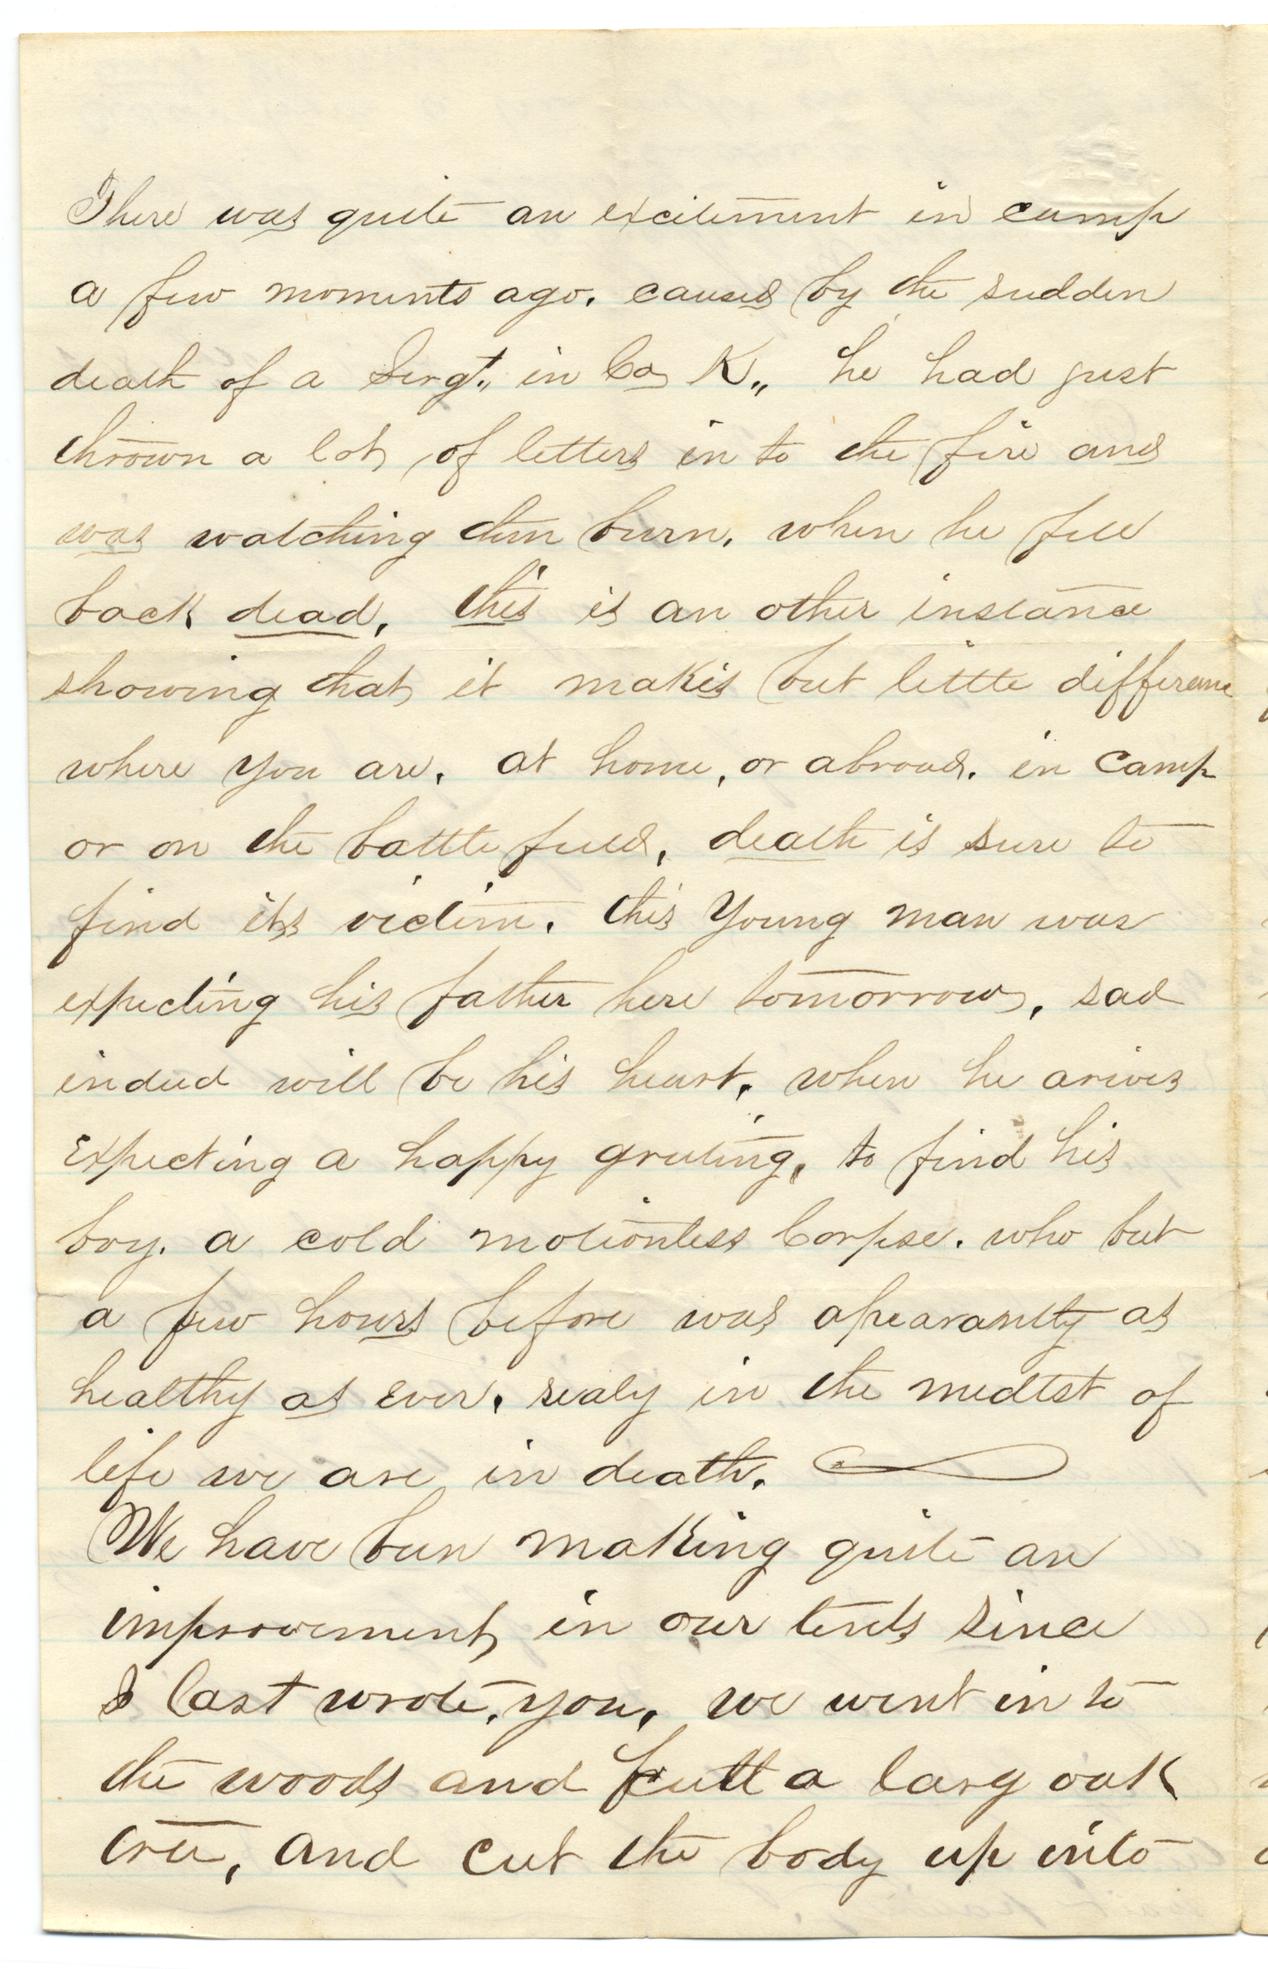 There was quite an excitement in camp
a few moments ago. caused by the sudden
death of a Sergt., in Co K,, he had just
thrown a lot, of letters in to the fire and
was watching them burn. when he fell
back dead, this is an other instance
showing that, it makes but little difference
where you are. at home, or abroad. in camp
or on the battle field, death is sure to
find its victim. this Young man was
expecting his father here tomorrow, sad
indeed will be his heart, when he arives
Expecting a happy greeting, to find his
boy. a cold motionless Corpse. who but
a few hours before was apearantly as
healthy as ever. realy in the medtst of
life we are in death.
We have been making quite an
improvement, in our tents since
I last wrote, you, we went in to
the woods and cutt a larg oak
tree, and cut the body up into